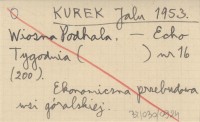 O KUREK Jalu 1953.
Wiosna Podhala. — Echo
Tygodnia ( ) nr 16
(200).
Ekonomiczna przebudowa
wsi góralskiej.